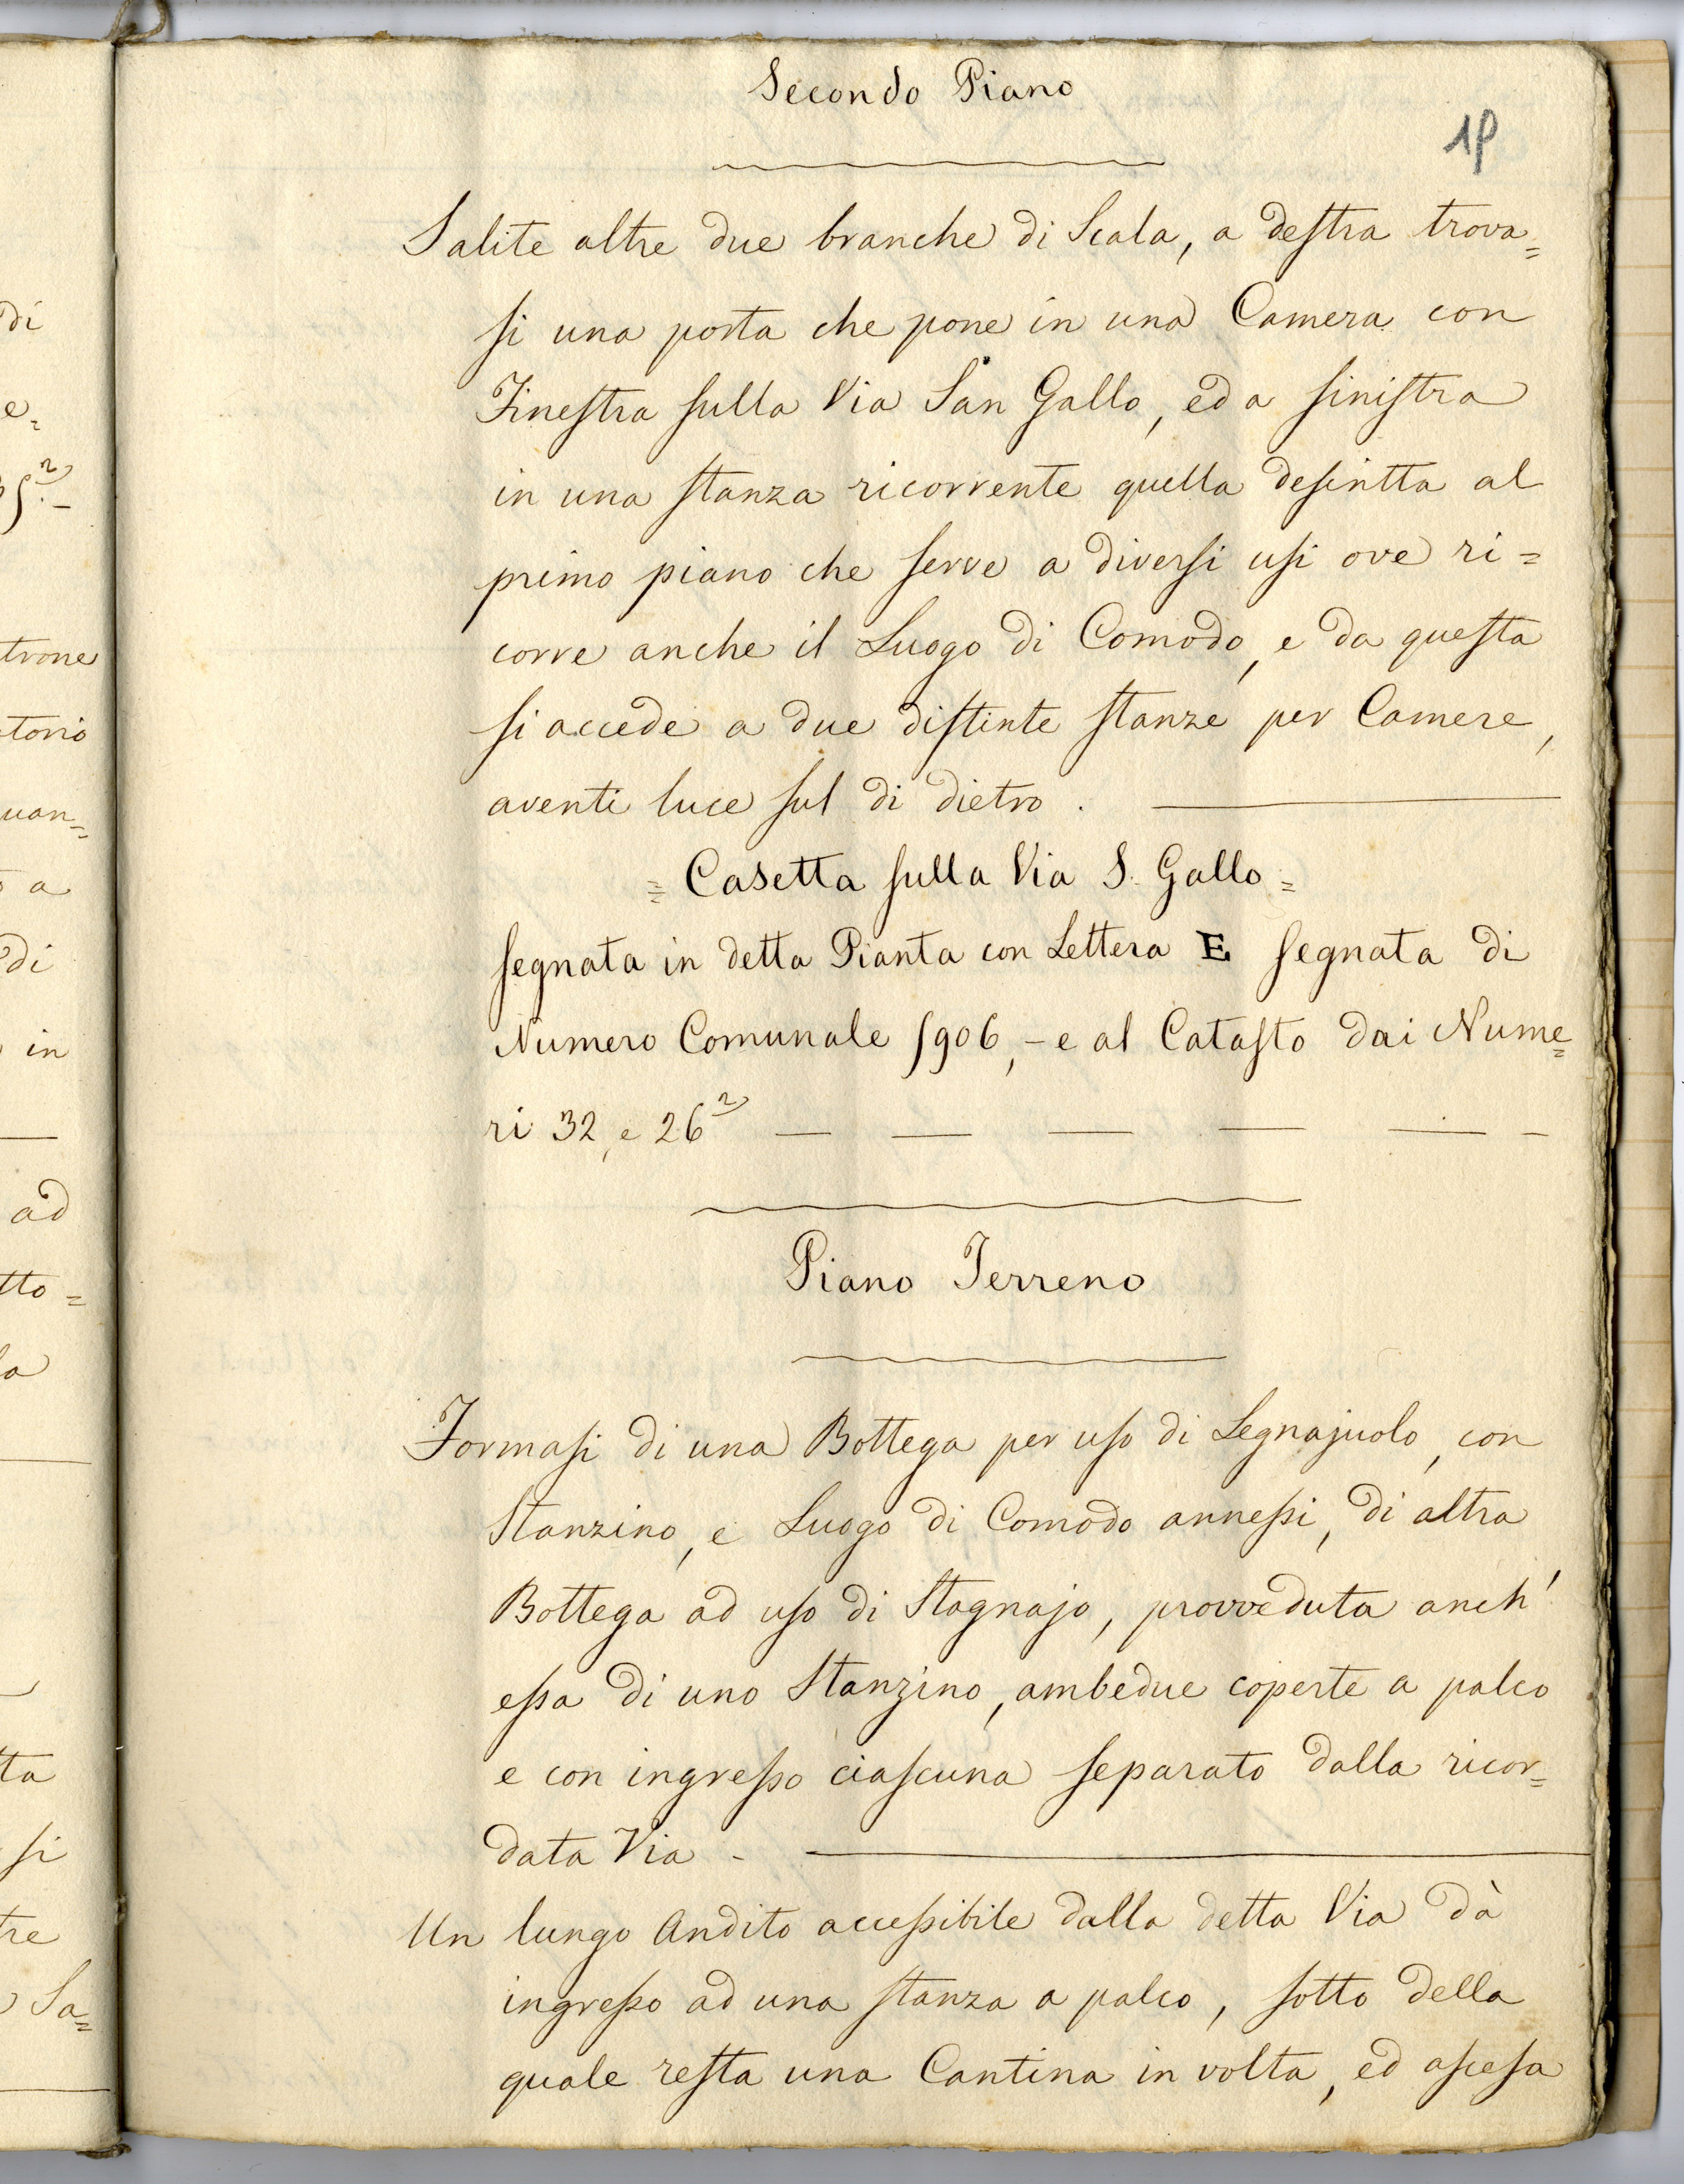 di
e=
trone
torio
uan=
a
di
in
ad
tto=
la
ta
si
tre
Sa=
Secondo Piano
Salite altre due branche di Scala, a destra trova=
si una porta che pone in una Camera con
Finestra sulla Via San Gallo, ed a sinistra
in una stanza ricorrente quella descritta al
primo piano che serve a diversi usi ove ri=
corre anche il Luogo di Comodo, e da questa
si accede a due distinte stanze per Camere,
aventi luce sul di dietro.
= Casetta sulla Via S. Gallo =
segnata in detta Pianta con Lettera E segnata di
Numero Comunale 5906,- e al Catasto dai Nume=
ri 32, e 26²
Piano Terreno
Formasi di una Bottega per uso di Legnajuolo, con
Stanzino, e Luogo di Comodo annessi, di altra
Bottega ad uso di Stagnajo, provveduta anch'
essa di uno Stanzino, ambedue coperte a palco
e con ingresso ciascuna separato dalla ricor=
data Via -
Un lungo Andito accessibile dalla detta Via dà
ingresso ad una stanza a palco, sotto della
quale resta una Cantina in volta, ed ascesa